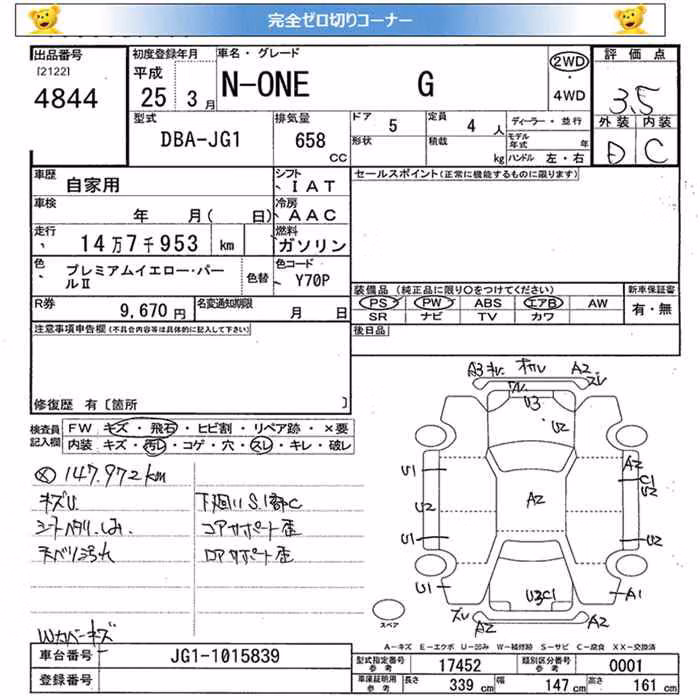 完全ゼロ切りコーナー
出品番号 初度登録年月 車名・グレード 評価点
[2122] 平成 2WD
4844 25 3月 N-ONE G ・ 3.5
4WD
型式 排気量 ドア 5 定員 4 人 ディーラー・並行 外装 内装
DBA-JG1 658 cc 形状 積載 kg モデル年式 年 D C
ハンドル 左・右
車歴 自家用 シフト IAT セールスポイント(正常に機能するものに限ります)
車検 年 月( 日) 冷房 AAC
走行 14万7千953 km 燃料 ガソリン
色 プレミアムイエロー・パールⅡ 色替 色コード Y70P
装備品(純正品に限り○をつけてください) 新車保証書
R券 9,670円 名変通知期限 月 日 PS PW ABS エアB AW 有・無
SR ナビ TV カワ
注意事項申告欄(不具合内容等は具体的に記入して下さい) 後日品
修復歴 有〔箇所 〕
検査員記入欄 FW キズ・飛石・ヒビ割・リペア跡・×要
内装 キズ・汚レ・コゲ・穴・スレ・キレ・破レ
147.972km
キズU. 下廻りS.1部C
シートヘタリ.しみ. コアサポート歪
天ベリ汚れ ロアサポート歪
Wカバーキズ
A3 A2
ズレ
U3
U2
U1 A2
C1
U2
U2 A2
U1 U2
U1 U3C1 A1
ズレ
A2 A2
スペア
A-キズ E-エクボ U-凹み W-補修跡 S-サビ C-腐食 XX-交換済
車台番号 JG1-1015839 型式指定番号 参考 17452 類別区分番号 参考 0001
登録番号 車庫証明用 参考 長さ 339 cm 幅 147 cm 高さ 161 cm